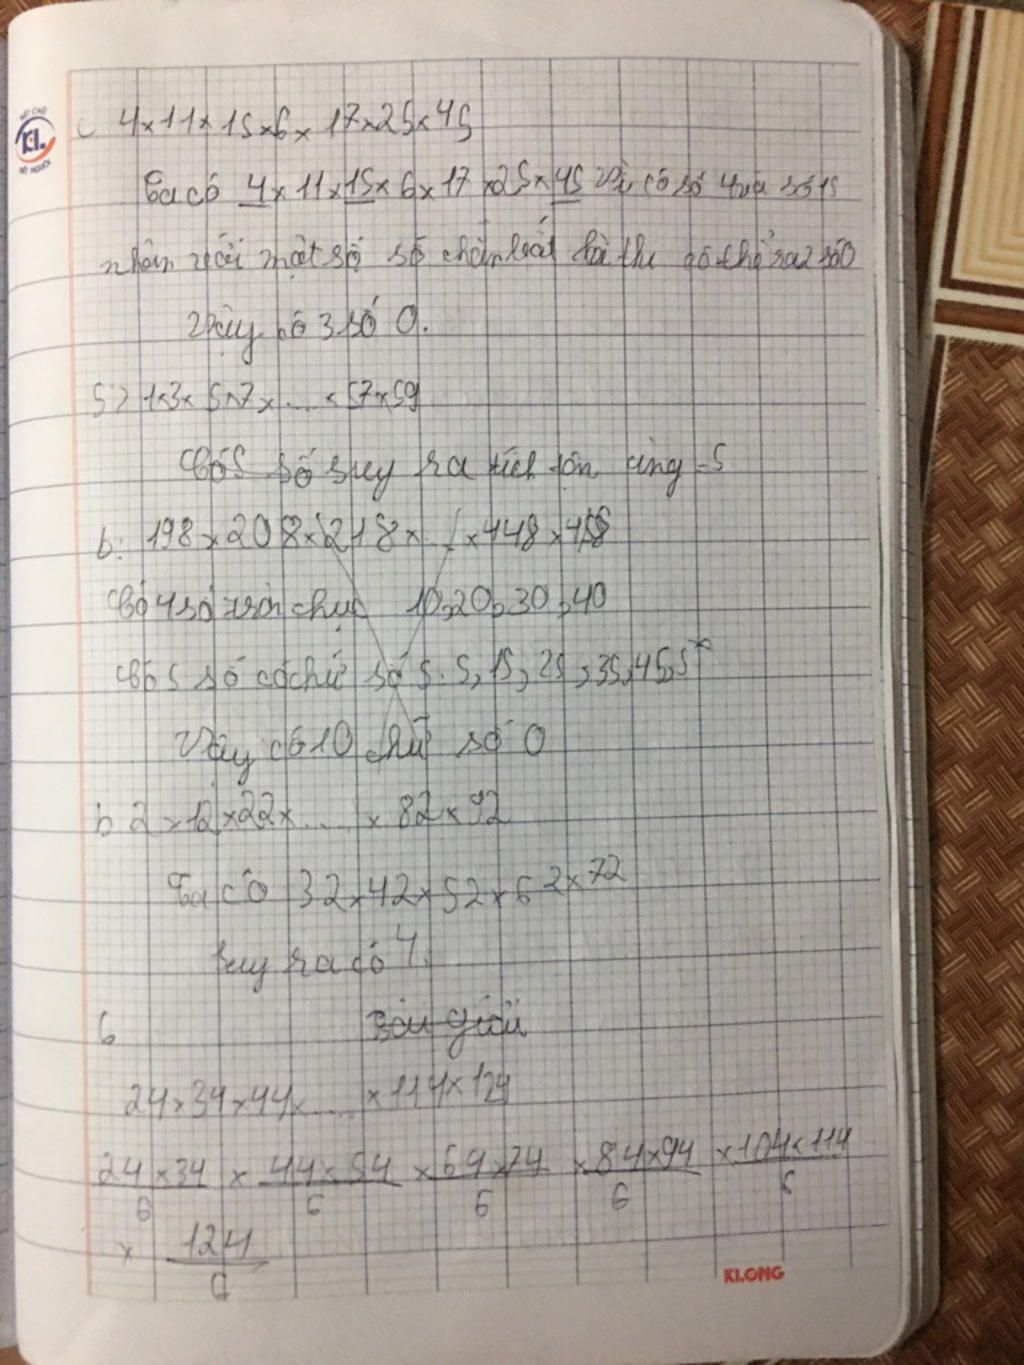 c 4×11×15×6×17×25×45
Ta có 4×11×15×6×17×25×45 Vì có số 4 và số 15
nhân với một số số chẵn bất thì có thể ra 2 số 0
Vậy có 3 số 0.
5> 1×3×5×7×....×57×59
Có 5 số suy ra tích tận cùng = 5
b: 198×208×218×...×448×458
Có 4 số tròn chục 10,20,30,40
Có 5 số có chữ số 5: 5,15,25,35,45,5
Vậy có 10 chữ số 0
b 2×12×22×.....×82×92
Ta có 32×42×52×62×72
suy ra có 4.
6 Bài giải
24×34×44×.....×114×124
24×34 × 44×54 × 64×74 × 84×94 ×104×114
6 6 6 6 6
× 124
KLONG